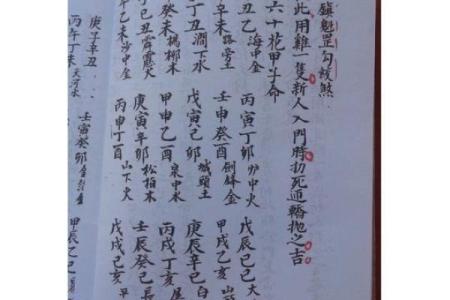 鎮魁罡勾絞煞
此用雞一隻新人入門時扐死轎拋之吉
六十花甲子命
乙丑 海中金 丙寅丁卯 炉中火 戊辰己巳 大
辛未 路旁土 壬申癸酉 劍鋒金 甲戌乙亥 山
丁丑 澗下水 戊寅己卯 城頭土 庚辰辛巳 白
午癸未 楊柳木 甲申乙酉 泉中水 丙戌丁亥 屋
子己丑 霹靂火 庚寅辛卯 松柏木 壬辰癸巳 長
午乙未 沙中金 丙申丁酉 山下火 戊戌己亥 平
庚子辛丑 壬寅癸卯 金箔金 甲辰乙巳
丙午丁未 天河水